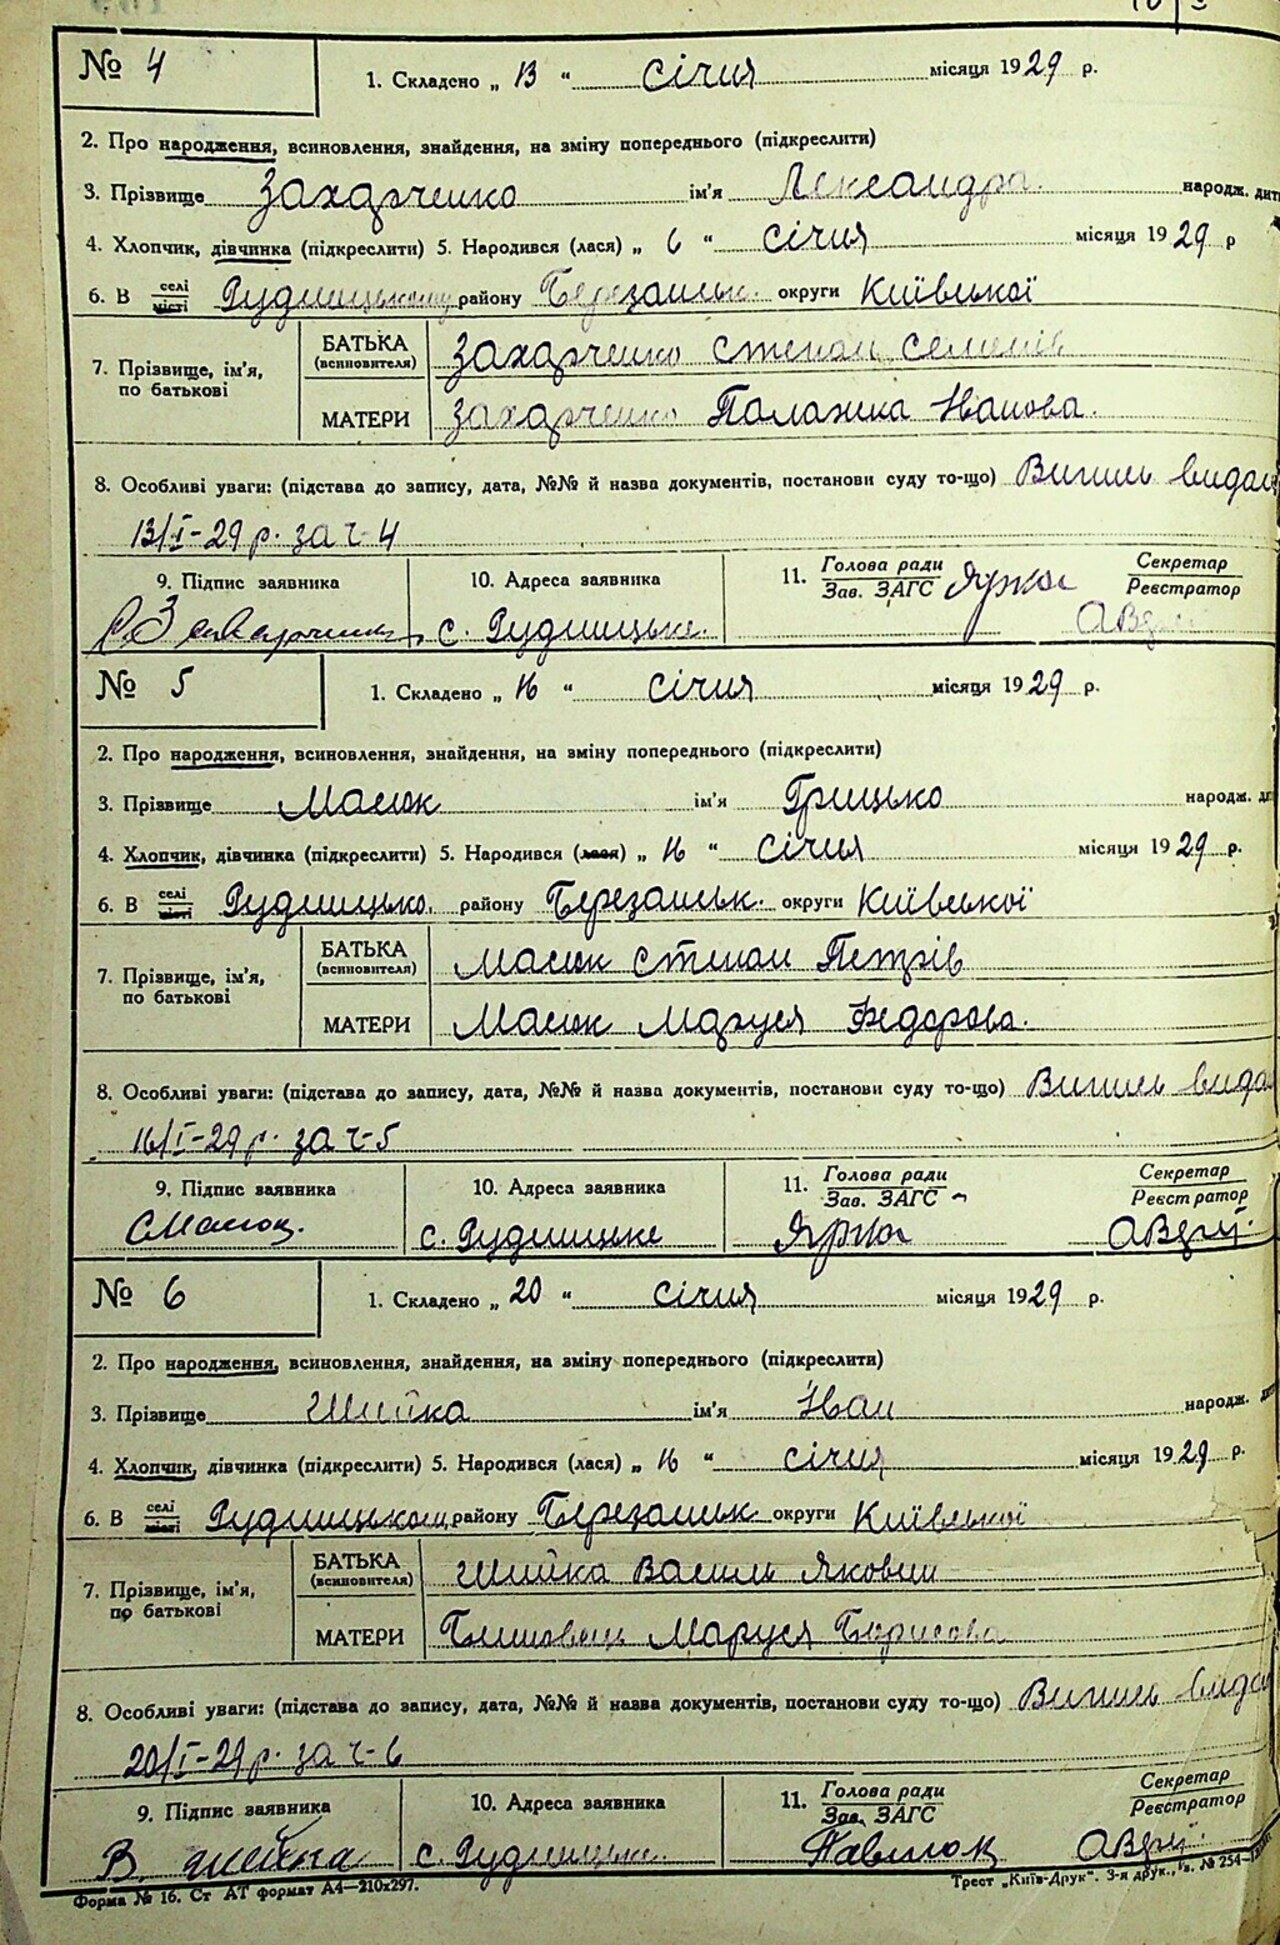 № 4
1. Складено „ 13 “ січня місяця 1929 р.
2. Про народження, всиновлення, знайдення, на зміну попереднього (підкреслити)
3. Прізвище Захарченко ім'я Лександра народж. дит
4. Хлопчик, дівчинка (підкреслити) 5. Народився (лася) „ 6 “ січня місяця 1929 р
6. В селі місті Рудницькому району Березанськ. округи Київської
7. Прізвище, ім'я, по батькові
БАТЬКА (всиновителя) Захарченко Степан Семенів
МАТЕРИ Захарченко Палажка Іванова.
8. Особливі уваги: (підстава до запису, дата, №№ й назва документів, постанови суду то-що) Випись видан
13/I-29 р. за ч-4
9. Підпис заявника 10. Адреса заявника 11. Голова ради Зав. ЗАГС Секретар Реєстратор
с. Рудницьке.
№ 5
1. Складено „ 16 “ січня місяця 1929 р.
2. Про народження, всиновлення, знайдення, на зміну попереднього (підкреслити)
3. Прізвище Масюк ім'я Грицько народж. ди
4. Хлопчик, дівчинка (підкреслити) 5. Народився (лася) „ 16 “ січня місяця 1929 р.
6. В селі місті Рудницько. району Березанськ. округи Київської
7. Прізвище, ім'я, по батькові
БАТЬКА (всиновителя) Масюк Степан Петрів
МАТЕРИ Масюк Маруся Федорова.
8. Особливі уваги: (підстава до запису, дата, №№ й назва документів, постанови суду то-що) Випись вида
16/I-29 р. за ч-5
9. Підпис заявника 10. Адреса заявника 11. Голова ради Зав. ЗАГС Секретар Реєстратор
СМасюк. с. Рудницьке
№ 6
1. Складено „ 20 “ січня місяця 1929 р.
2. Про народження, всиновлення, знайдення, на зміну попереднього (підкреслити)
3. Прізвище Шийка ім'я Іван народж. ди
4. Хлопчик, дівчинка (підкреслити) 5. Народився (лася) „ 16 “ січня місяця 1929 р.
6. В селі місті Рудницьком району Березанськ. округи Київської
7. Прізвище, ім'я, по батькові
БАТЬКА (всиновителя) Шийка Василь Яковин
МАТЕРИ Маруся Борисова
8. Особливі уваги: (підстава до запису, дата, №№ й назва документів, постанови суду то-що) Випись вида
20/I-29 р. за ч-6
9. Підпис заявника 10. Адреса заявника 11. Голова ради Зав. ЗАГС Секретар Реєстратор
В. Шийка с. Рудницьке. Павлюк
Форма № 16. Ст АТ формат А4—210x297. Трест „Київ-Друк“. 3-я друк., Зв. № 254—